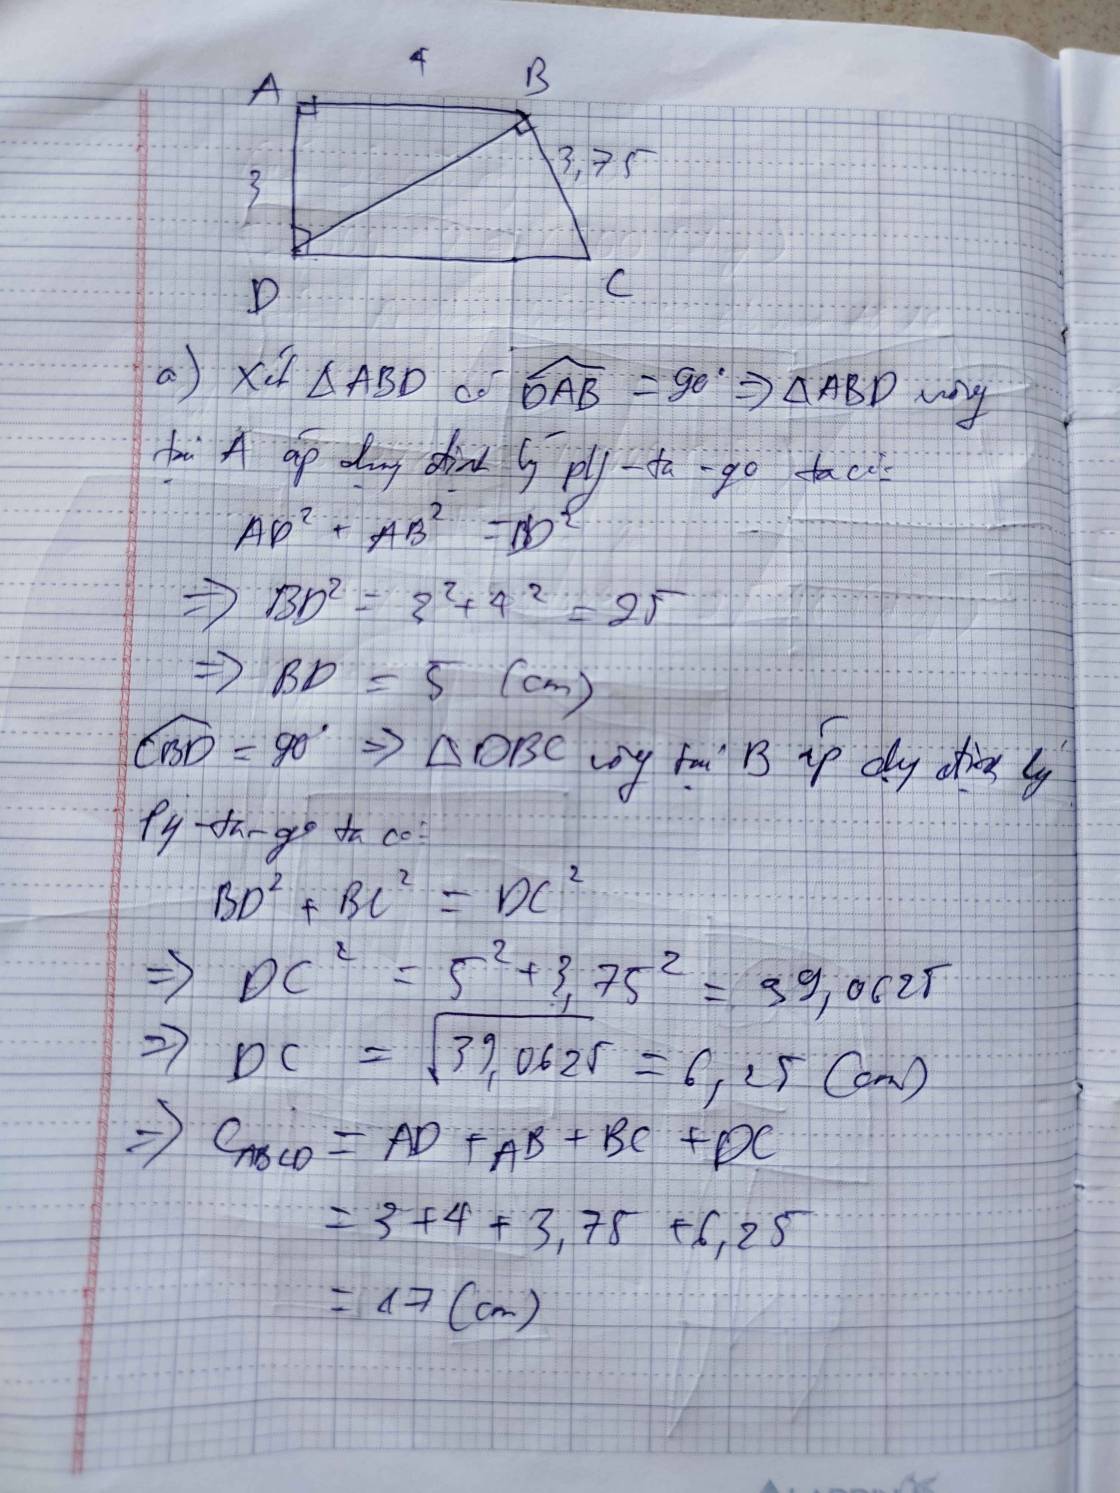 4
A B
3 3,75
D C
a) Xét △ABD có \widehat{DAB} = 90° => △ABD vuông
tại A áp dụng định lý py-ta-go ta có:
AD² + AB² = BD²
=> BD² = 3² + 4² = 25
=> BD = 5 (cm)
\widehat{CBD} = 90° => △DBC vuông tại B áp dụng định lý
Py-ta-go ta có:
BD² + BC² = DC²
=> DC² = 5² + 3,75² = 39,0625
=> DC = √39,0625 = 6,25 (cm)
=> C_{ABCD} = AD + AB + BC + DC
= 3 + 4 + 3,75 + 6,25
= 17 (cm)